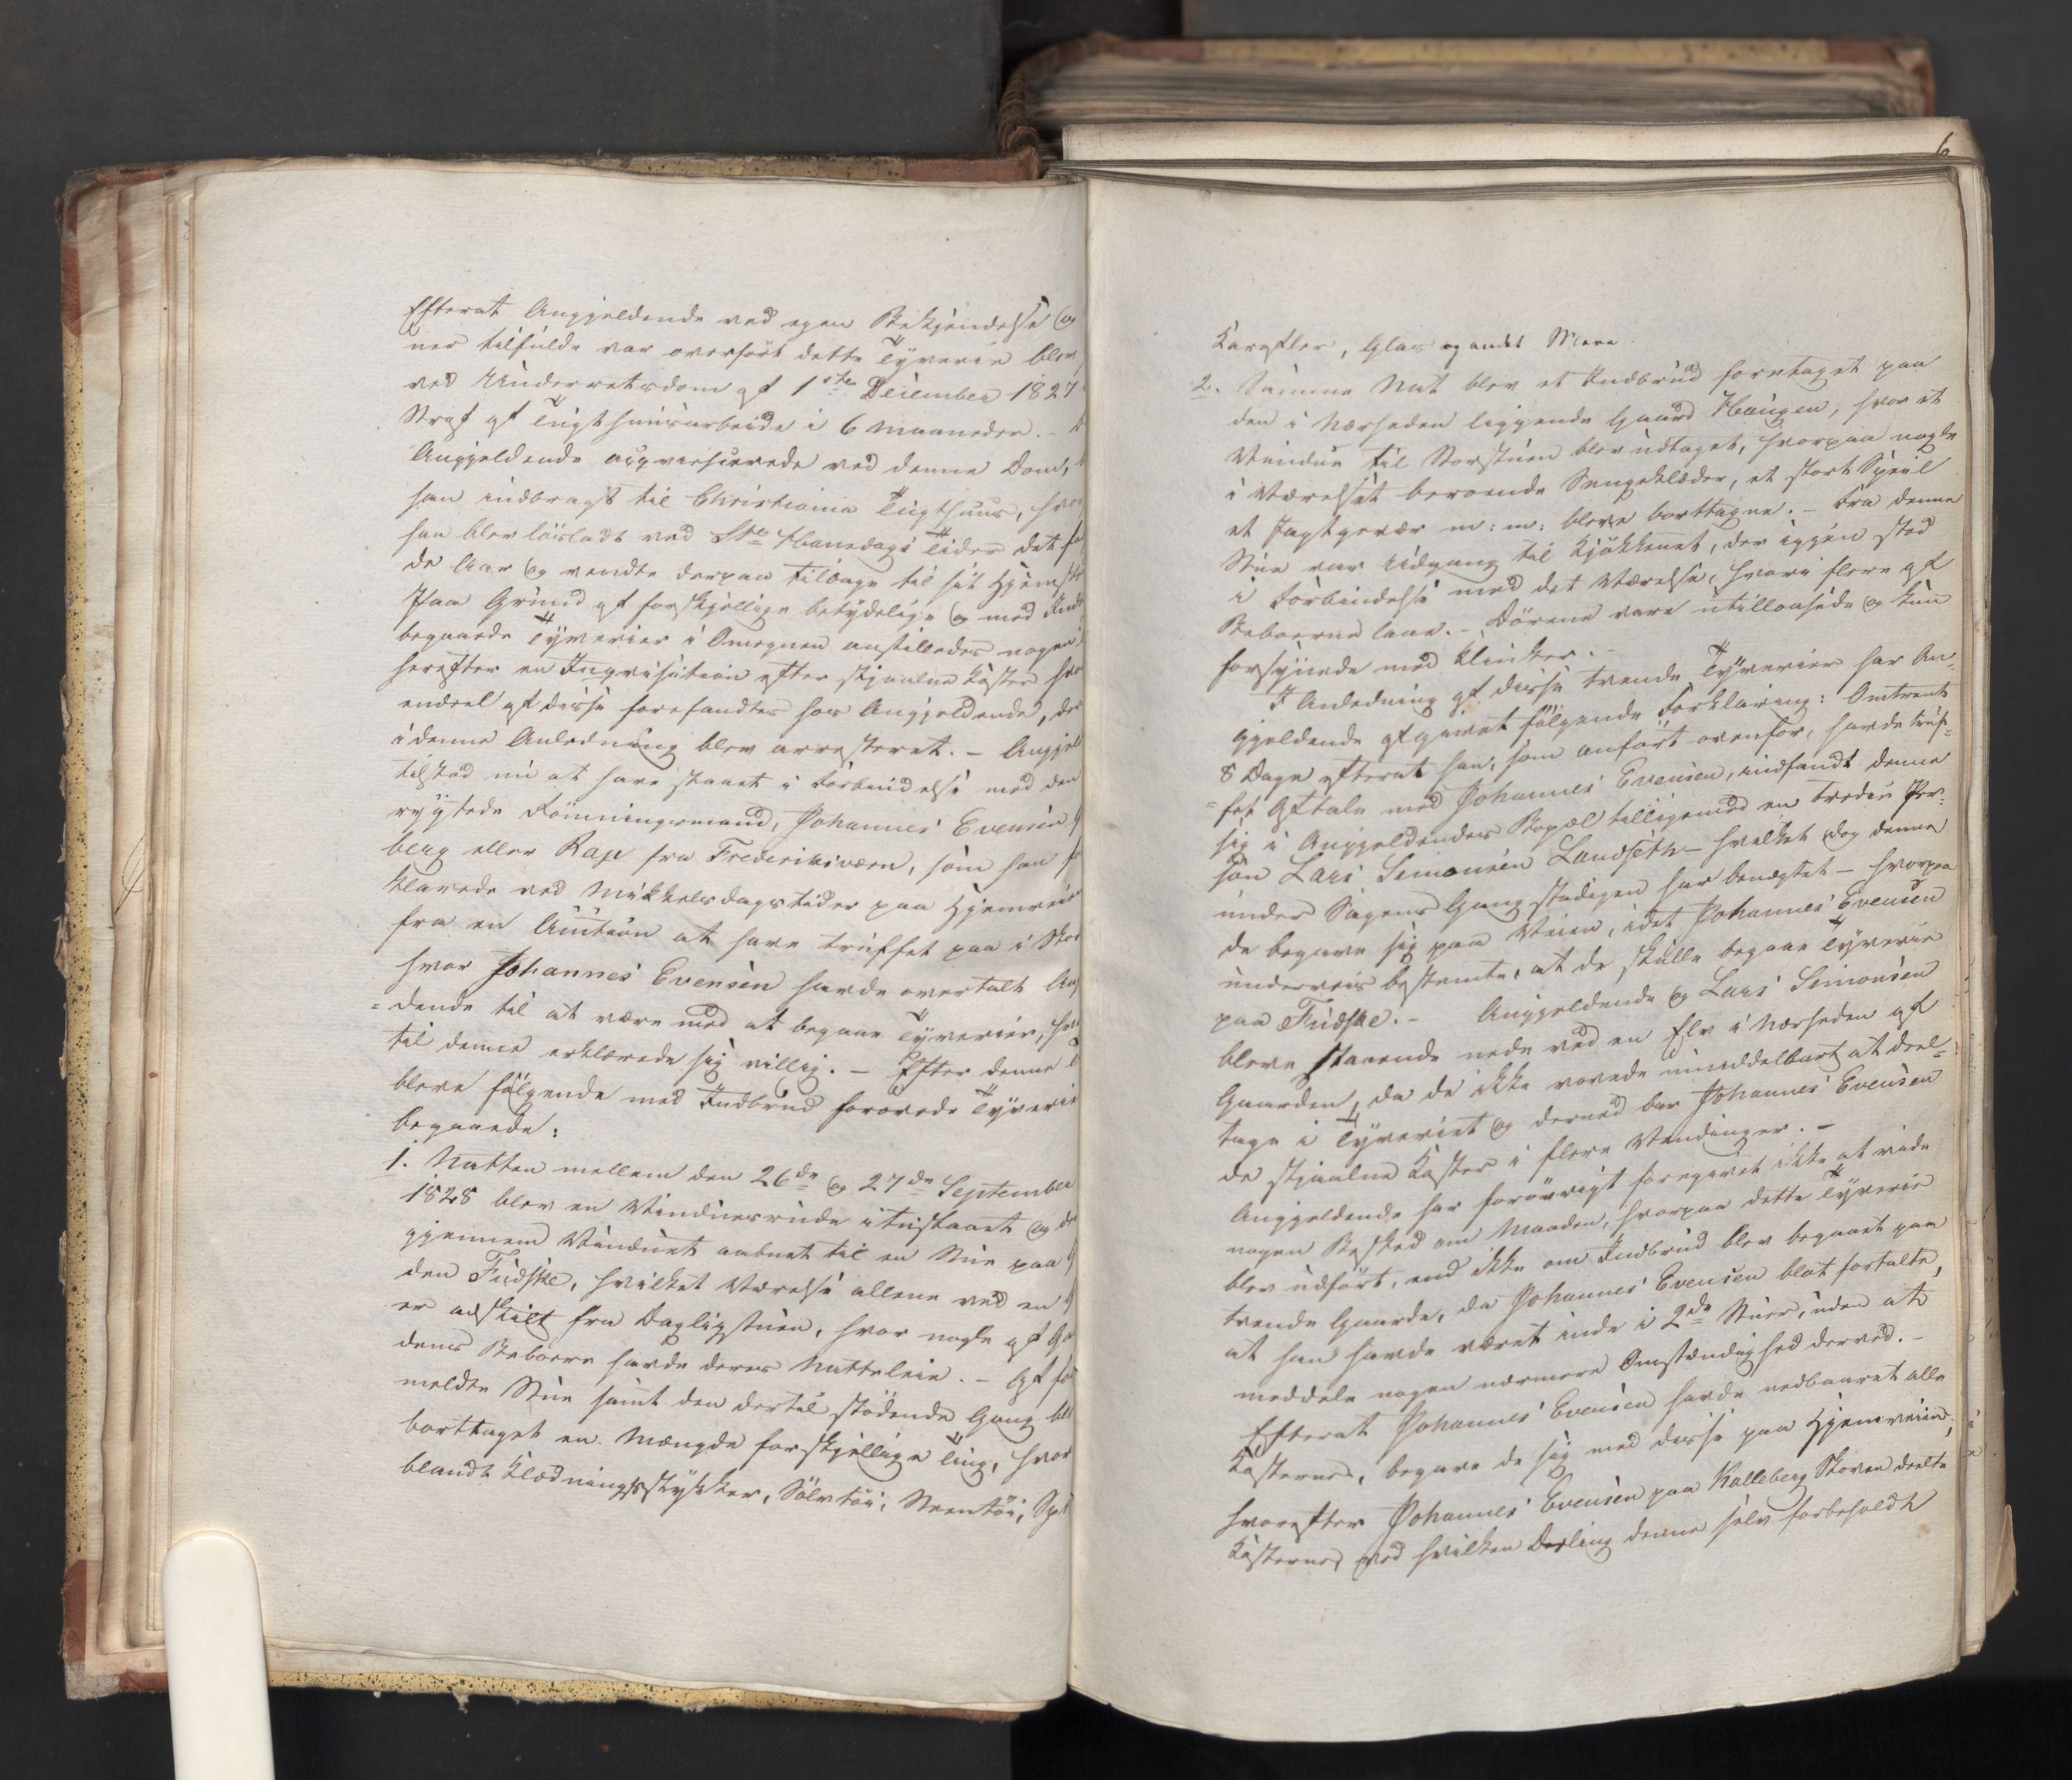 Efterat Angjeldende ved egen Bekjendelse og
ner tilfulde var overført dette Tyverie blev
ved Underretsdom af 1ste December 1827
Straf af Tugthuusarbeide i 6 Maaneder. –
Angjeldende acqviescerede ved denne Dom,
han indbragt til Christiania Tugthuus, hvor
han blev løsladt ved Ste Hansdags Tider det
de Aar og vendte derpaa tilbage til sit Hjemsted
Paa Grund af forskjellige betydelige og med Ind
begaaede Tyverier i Omegnen anstilledes nogen
herefter en Inqvisition efter stjaalne Koster hvor
endeel af disse forefandtes hos Angjeldende, der
i denne Anledning blev arresteret. – Angjel
tilstod nu at have staaet i Forbindelse med den
rygtede Rømningsmand, Johannes Evensen
berg eller Rap fra Frederiksværn, som han for
klarede ved Mikkelsdagstider paa Hjemveien
fra en Auction at have truffet paa i Skov
hvor Johannes Evensen havde overtalt Ang
= dende til at være med at begaae Tyverier, hvor
til denne erklærede sig villig. – Efter denne
bleve følgende med Indbrud forøvede Tyverie
begaaede:
1. Natten mellem den 26de og 27de September
1828 blev en Vinduesrude itustaaet og de
gjennem Vinduet aabnet til en Stue paa
den Fudske, hvilket Værelse allene ved en
er adskilt fra Dagligstuen, hvor nogle af Ga
dens Beboere havde deres Natteleie. – Af for
meldte Stue samt den dertil stødende Gang ble
borttaget en Mængde forskjellige Ting, hvor
blandt Klædningsstykker, Sølvtøi, Steentøi, Spi
6
Karafler, Glas og andet Mere.
2. Samme Nat blev et Indbrud foretaget paa
den i Nærheden liggende Gaard Haugen, hvor et
Vindue til Storstuen blev udtaget, hvorpaa nogle
i Værelset beroende Sengeklæder, et stort Speil
et Jagtgevær m: m: bleve borttagne. – Fra denne
Stue var Udgang til Kjøkkenet, der igjen stod
i Forbindelse med det Værelse, hvori flere af
Beboerne laae. – Dørene vare utillaasede og kun
forsynede med Klinker. –
I Anledning af disse tvende Tyverier har An=
gjeldende afgivet følgende Forklaring: Omtrent
8 Dage efterat han, som anført ovenfor, havde truf=
= fet Aftale med Johannes Evensen, indfandt denne
sig i Angjeldendes Bopæl tilligemed en tredie Per=
son Lars Simonsen Landseth – hvilket dog denne
under Sagens Gang stadigen har benægtet – hvorpaa
de begave sig paa Veien, idet Johannes Evensen
underveis bestemte, at de skulle begaae Tyverie
paa Fudske. – Angjeldende og Lars Simonsen
bleve staaende nede ved en Elv i Nærheden af
Gaarden, da de ikke vovede umiddelbart at deel=
tage i Tyveriet og derned bar Johannes Evensen
de stjaalne Koster i flere Vendinger. –
Angjeldende har forøvrigt foregivet ikke at vide
nogen Besked om Maaden, hvorpaa dette Tyverie
blev udført, end ikke om Indbrud blev begaaet paa
tvende Gaarde, da Johannes Evensen blot fortalte,
at han havde været inde i 2de Stuer, uden at
meddele nogen nærmere Omstændighed derved. –
Efterat Johannes Evensen havde nedbaaret alle
Kosterne, begave de sig med disse paa Hjemveien,
hvorefter Johannes Evensen paa Kalleberg Skoven deelte
Kosterne, ved hvilken Deeling denne selv forbeholdt